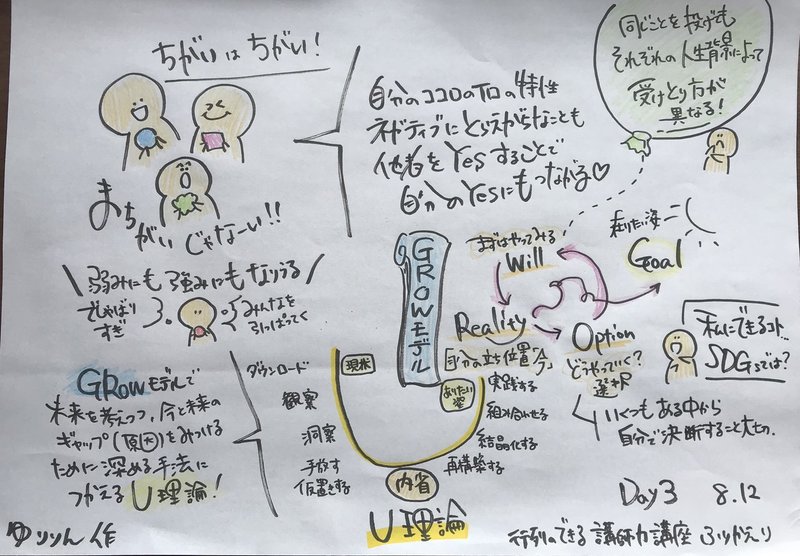 ちがいはちがい!
まちがいじゃなーい!!
自分のココロの下口の特性
ネガティブにとらえがちなことも
他者をYesすることで
自分のYesにもつながる♡
同じことを投げても
それぞれの人生背景によって
受けとり方が
異なる!
弱みにも強みにもなりうる
でしゃばり
すぎ
みんなを
引っぱってく
GROWモデル
まずはやってみる
Will
なりたい姿
Goal
Reality
自分の立ち位置「今」
Option
どうやっていく?
選択
私にできるコト…
SDGsでは?
いくつもある中から
自分で決断すること大切。
GROWモデルで
未来を考えつつ、今と未来の
ギャップ(原因)をみつける
ために深める手法に
つかえるU理論!
ダウンロード
観察
洞察
手放す
仮置きする
現状
ありたい
姿
実践する
組み合わせる
結晶化する
再構築する
内省
U理論
Day3 8.12
行列のできる講師力講座 ふりかえり
ゆりりん作